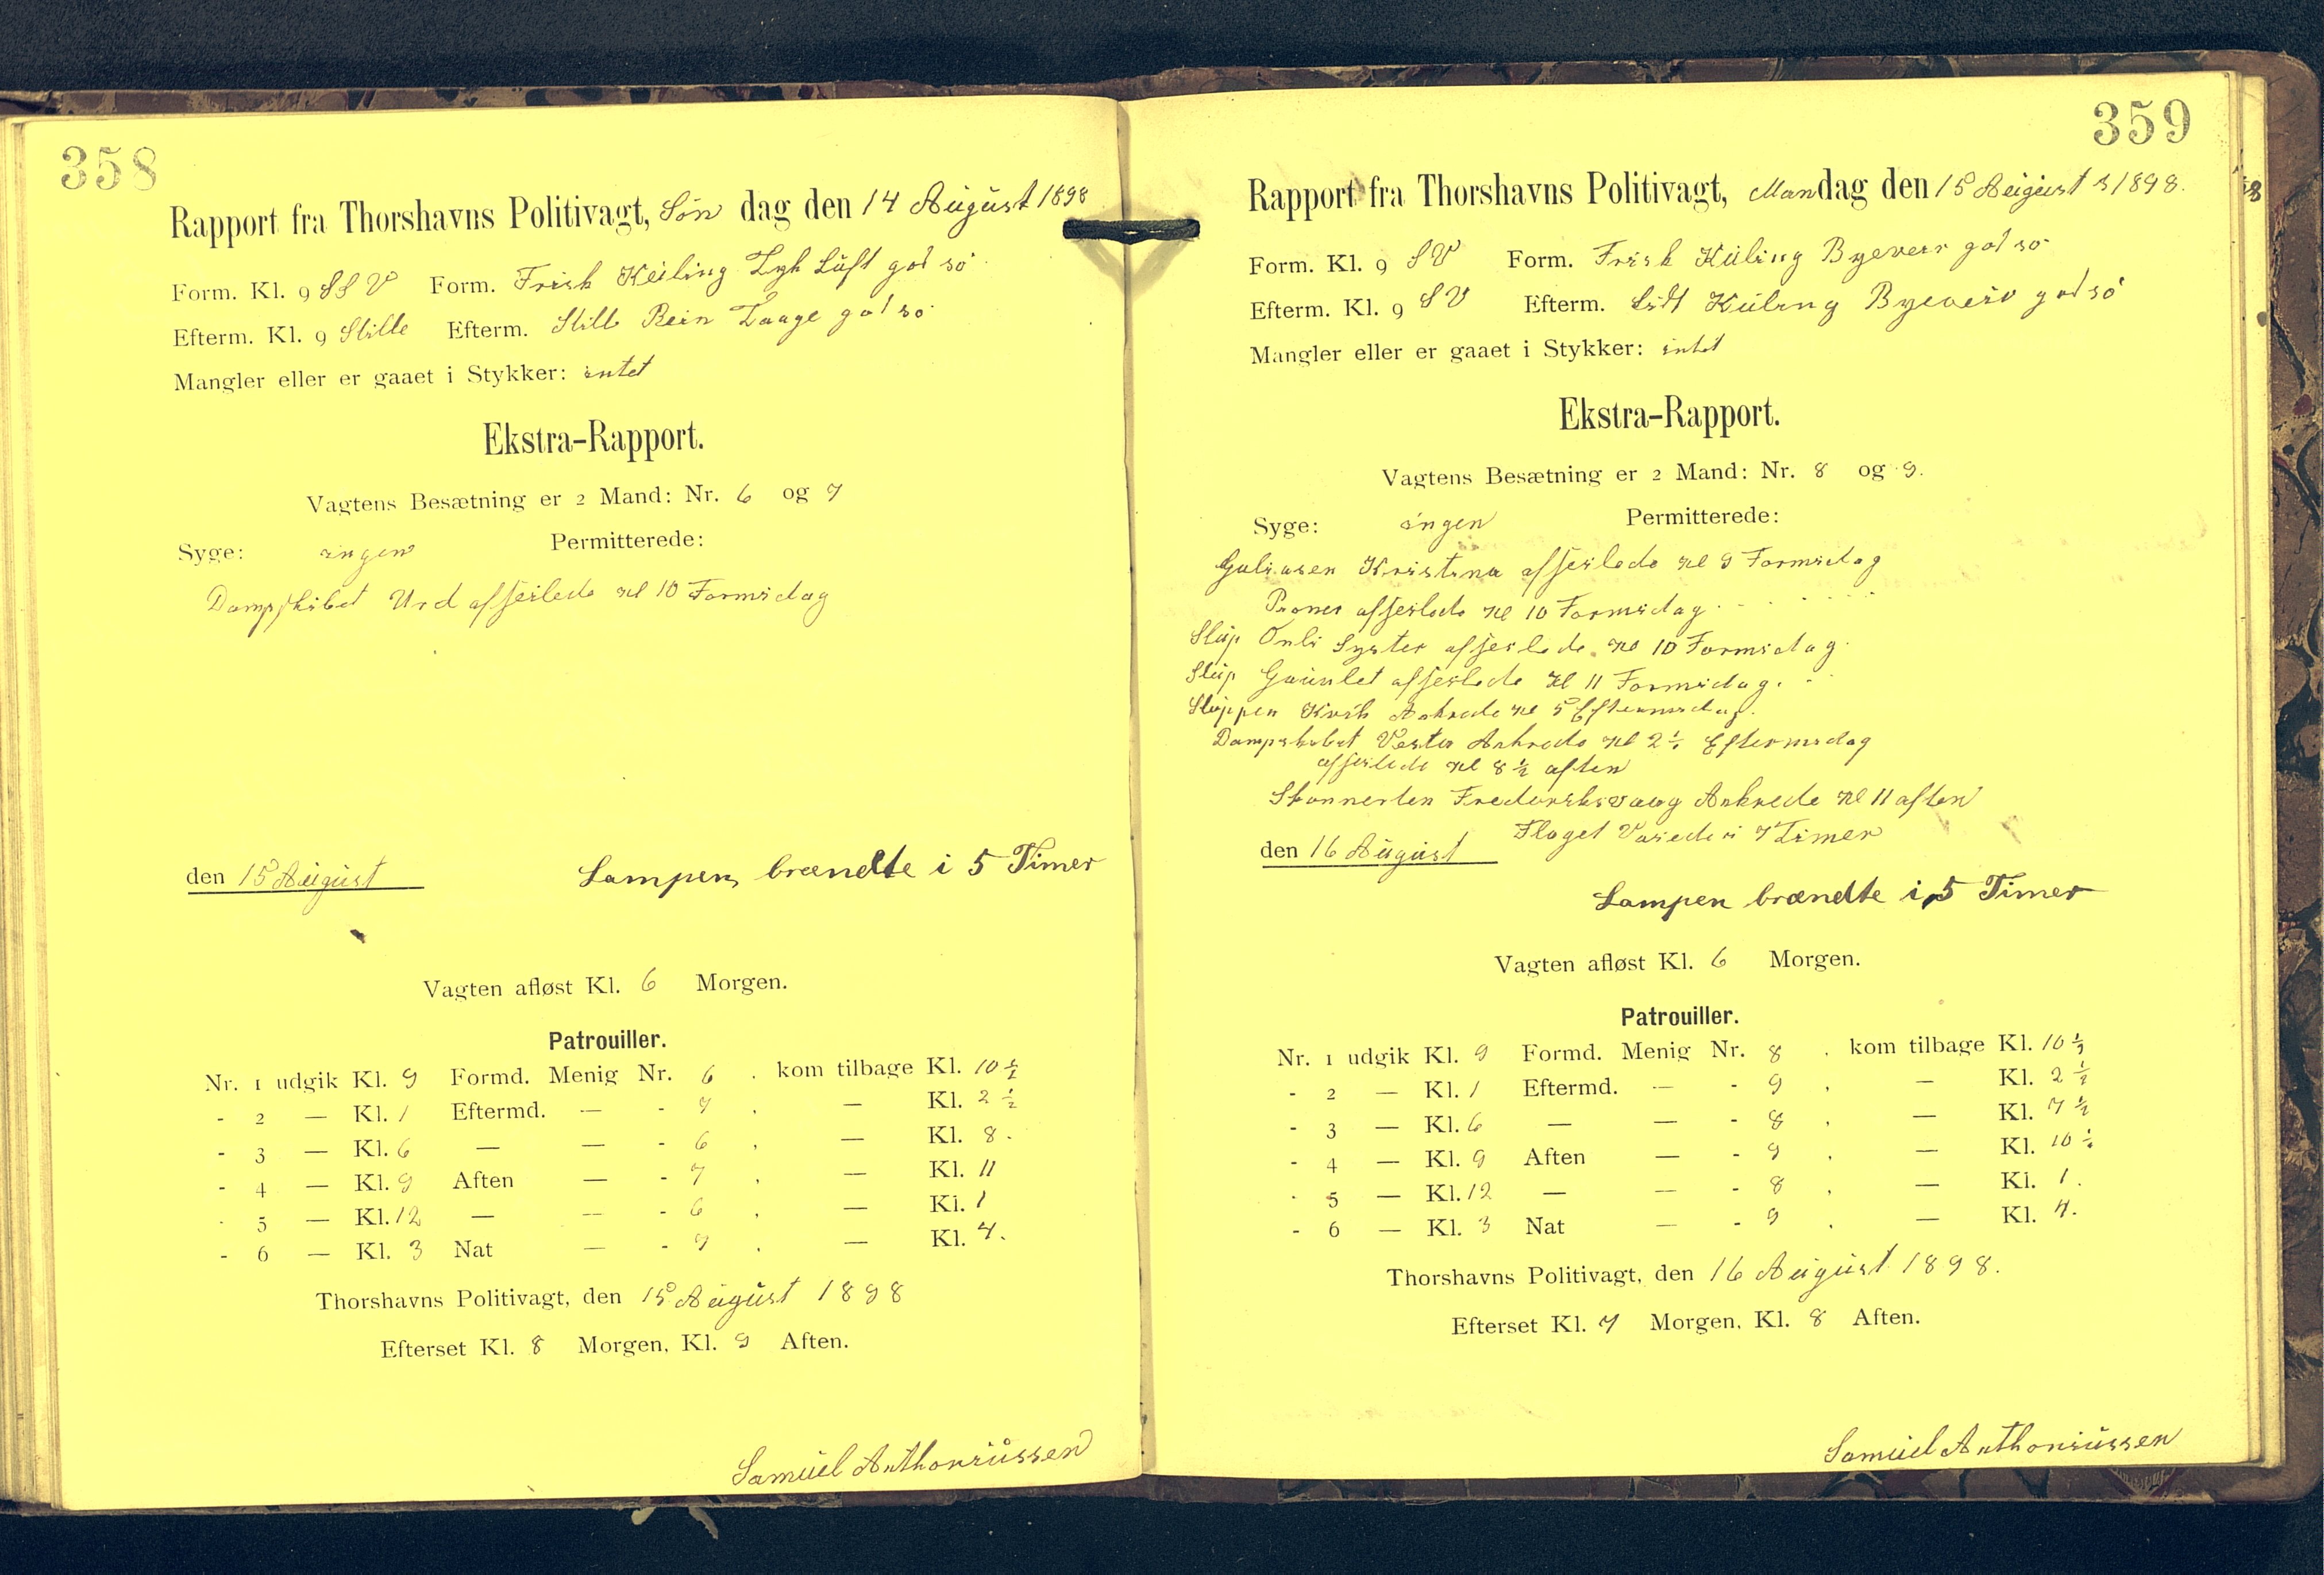 358
Rapport fra Thorshavns Politivagt, Søn dag den 14 August 1898
Form. Kl. 9 SSV Form. Frisk Kuling Tyk Luft god sø
Efterm. Kl. 9 Stille Efterm. Still Rein Taage god sø
Mangler eller er gaaet i Stykker: intet
Ekstra-Rapport.
Vagtens Besætning er 2 Mand: Nr. 6 og 7
Syge: ingen Permitterede:
Dampskibet Urd afseilede Kl 10 Formidag
den 15 August Lampen brændte i 5 Timer
Vagten afløst Kl. 6 Morgen.
Patrouiller.
Nr. 1 udgik Kl. 9 Formd. Menig Nr. 6 . kom tilbage Kl. 10 ½
- 2 — Kl. 1 Eftermd. — - 7 . — Kl. 2 ½
- 3 — Kl. 6 — — - 6 . — Kl. 8.
- 4 — Kl. 9 Aften — - 7 . — Kl. 11
- 5 — Kl. 12 — — - 6 . — Kl. 1
- 6 — Kl. 3 Nat — - 7 . — Kl. 4.
Thorshavns Politivagt, den 15 August 1898
Efterset Kl. 8 Morgen, Kl. 9 Aften.
Samuel Anthoniussen
359
Rapport fra Thorshavns Politivagt, Mandag den 15 August 1898.
Form. Kl. 9 SV Form. Frisk Kuling Byeveir god sø
Efterm. Kl. 9 SV Efterm. Lidt Kuling Byeveir god sø
Mangler eller er gaaet i Stykker: intet
Ekstra-Rapport.
Vagtens Besætning er 2 Mand: Nr. 8 og 9.
Syge: ingen Permitterede:
Galiasen Kristina afseilede Kl 9 Formidag
afseilede Kl 10 Formidag
Slup Onli Syster afseilede Kl 10 Formidag.
Slup Gauntlet afseilede Kl 11 Formidag.
Sluppen Kvik Ankrede Kl 5 Eftermidag.
Dampskibet Vesta Ankrede Kl 2½ Eftermidag
afseilede Kl 8½ aften
Skonnerten Frederiksvaag Ankrede Kl 11 aften
Flaget Vaiede i 7 Timer
den 16 August
Lampen brændte i 5 Timer
Vagten afløst Kl. 6 Morgen.
Patrouiller.
Nr. 1 udgik Kl. 9 Formd. Menig Nr. 8 . kom tilbage Kl. 10 ½
- 2 — Kl. 1 Eftermd. — - 9 . — Kl. 2 ½
- 3 — Kl. 6 — — - 8 . — Kl. 7 ½
- 4 — Kl. 9 Aften — - 9 . — Kl. 10 ½
- 5 — Kl. 12 — — - 8 . — Kl. 1.
- 6 — Kl. 3 Nat — - 9 . — Kl. 4.
Thorshavns Politivagt, den 16 August 1898.
Efterset Kl. 7 Morgen, Kl. 8 Aften.
Samuel Anthoniussen